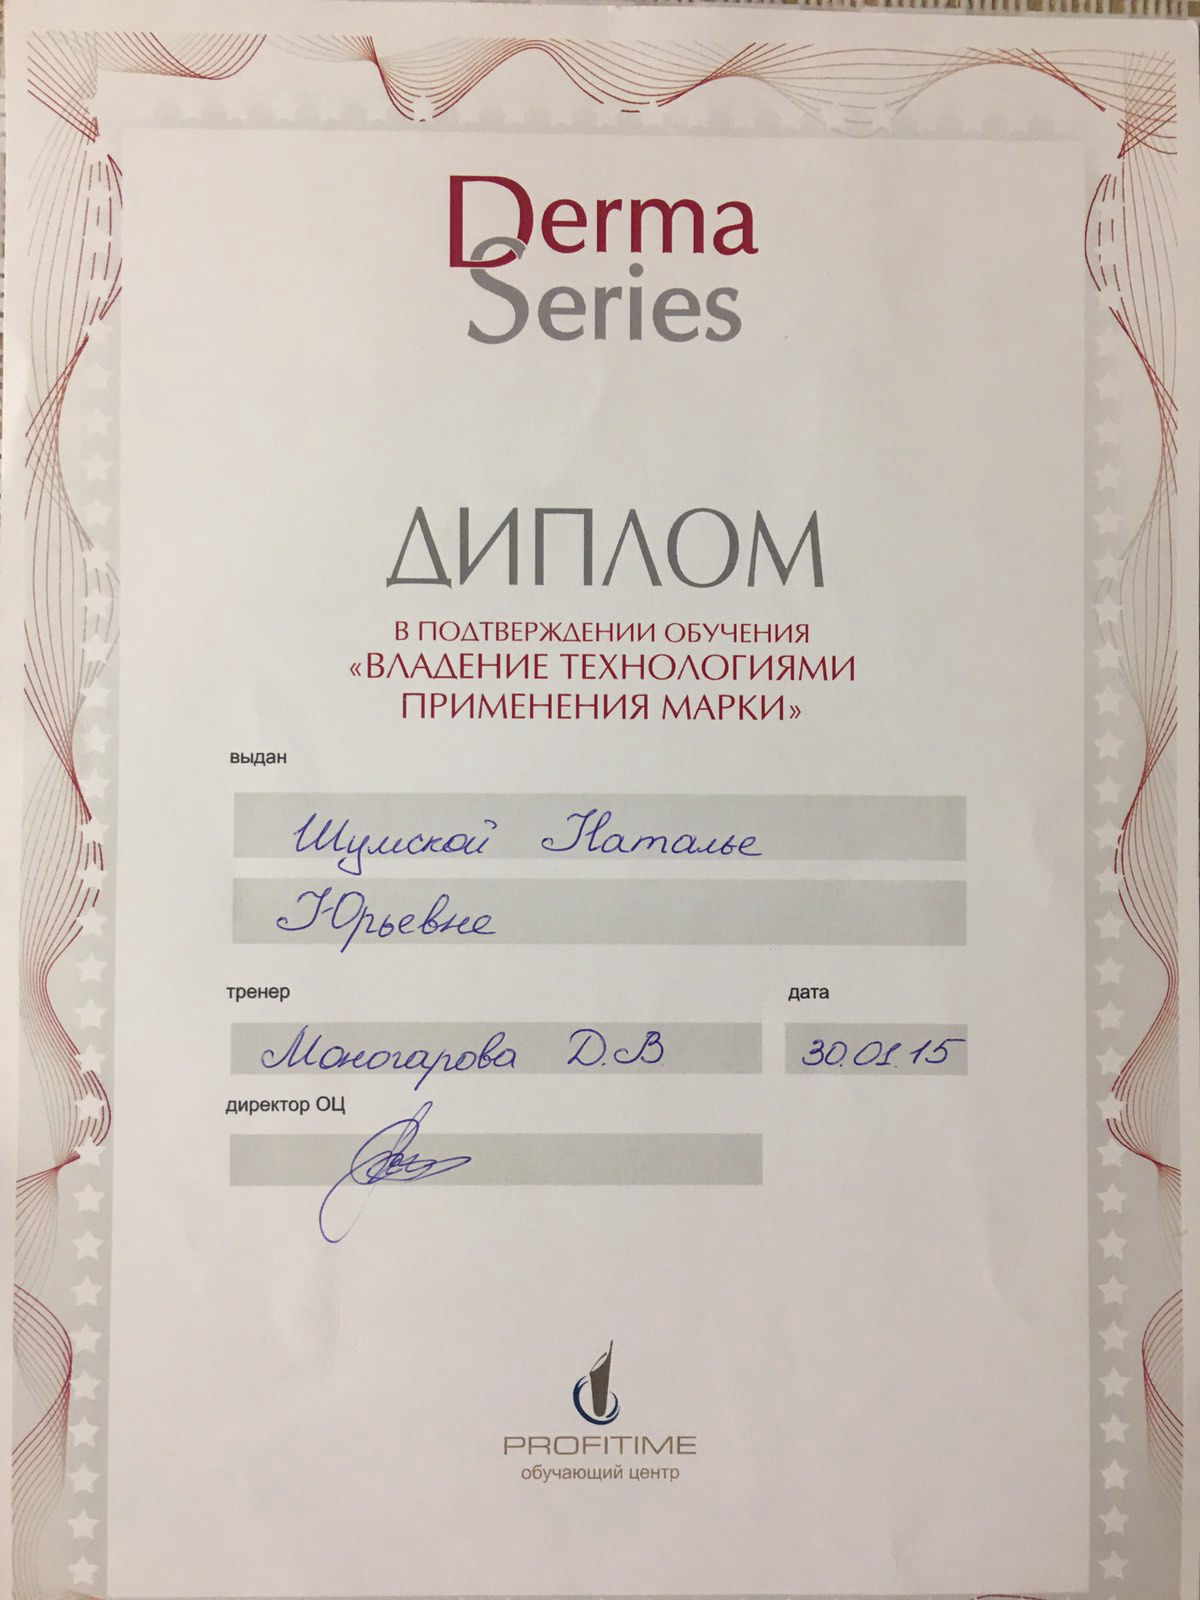 Derma
Series
ДИПЛОМ
В ПОДТВЕРЖДЕНИИ ОБУЧЕНИЯ
«ВЛАДЕНИЕ ТЕХНОЛОГИЯМИ
ПРИМЕНЕНИЯ МАРКИ»
выдан
Шумской Наталье
Юрьевне
тренер
дата
Моногарова Д.В
30.01.15
директор ОЦ
PROFITIME
обучающий центр